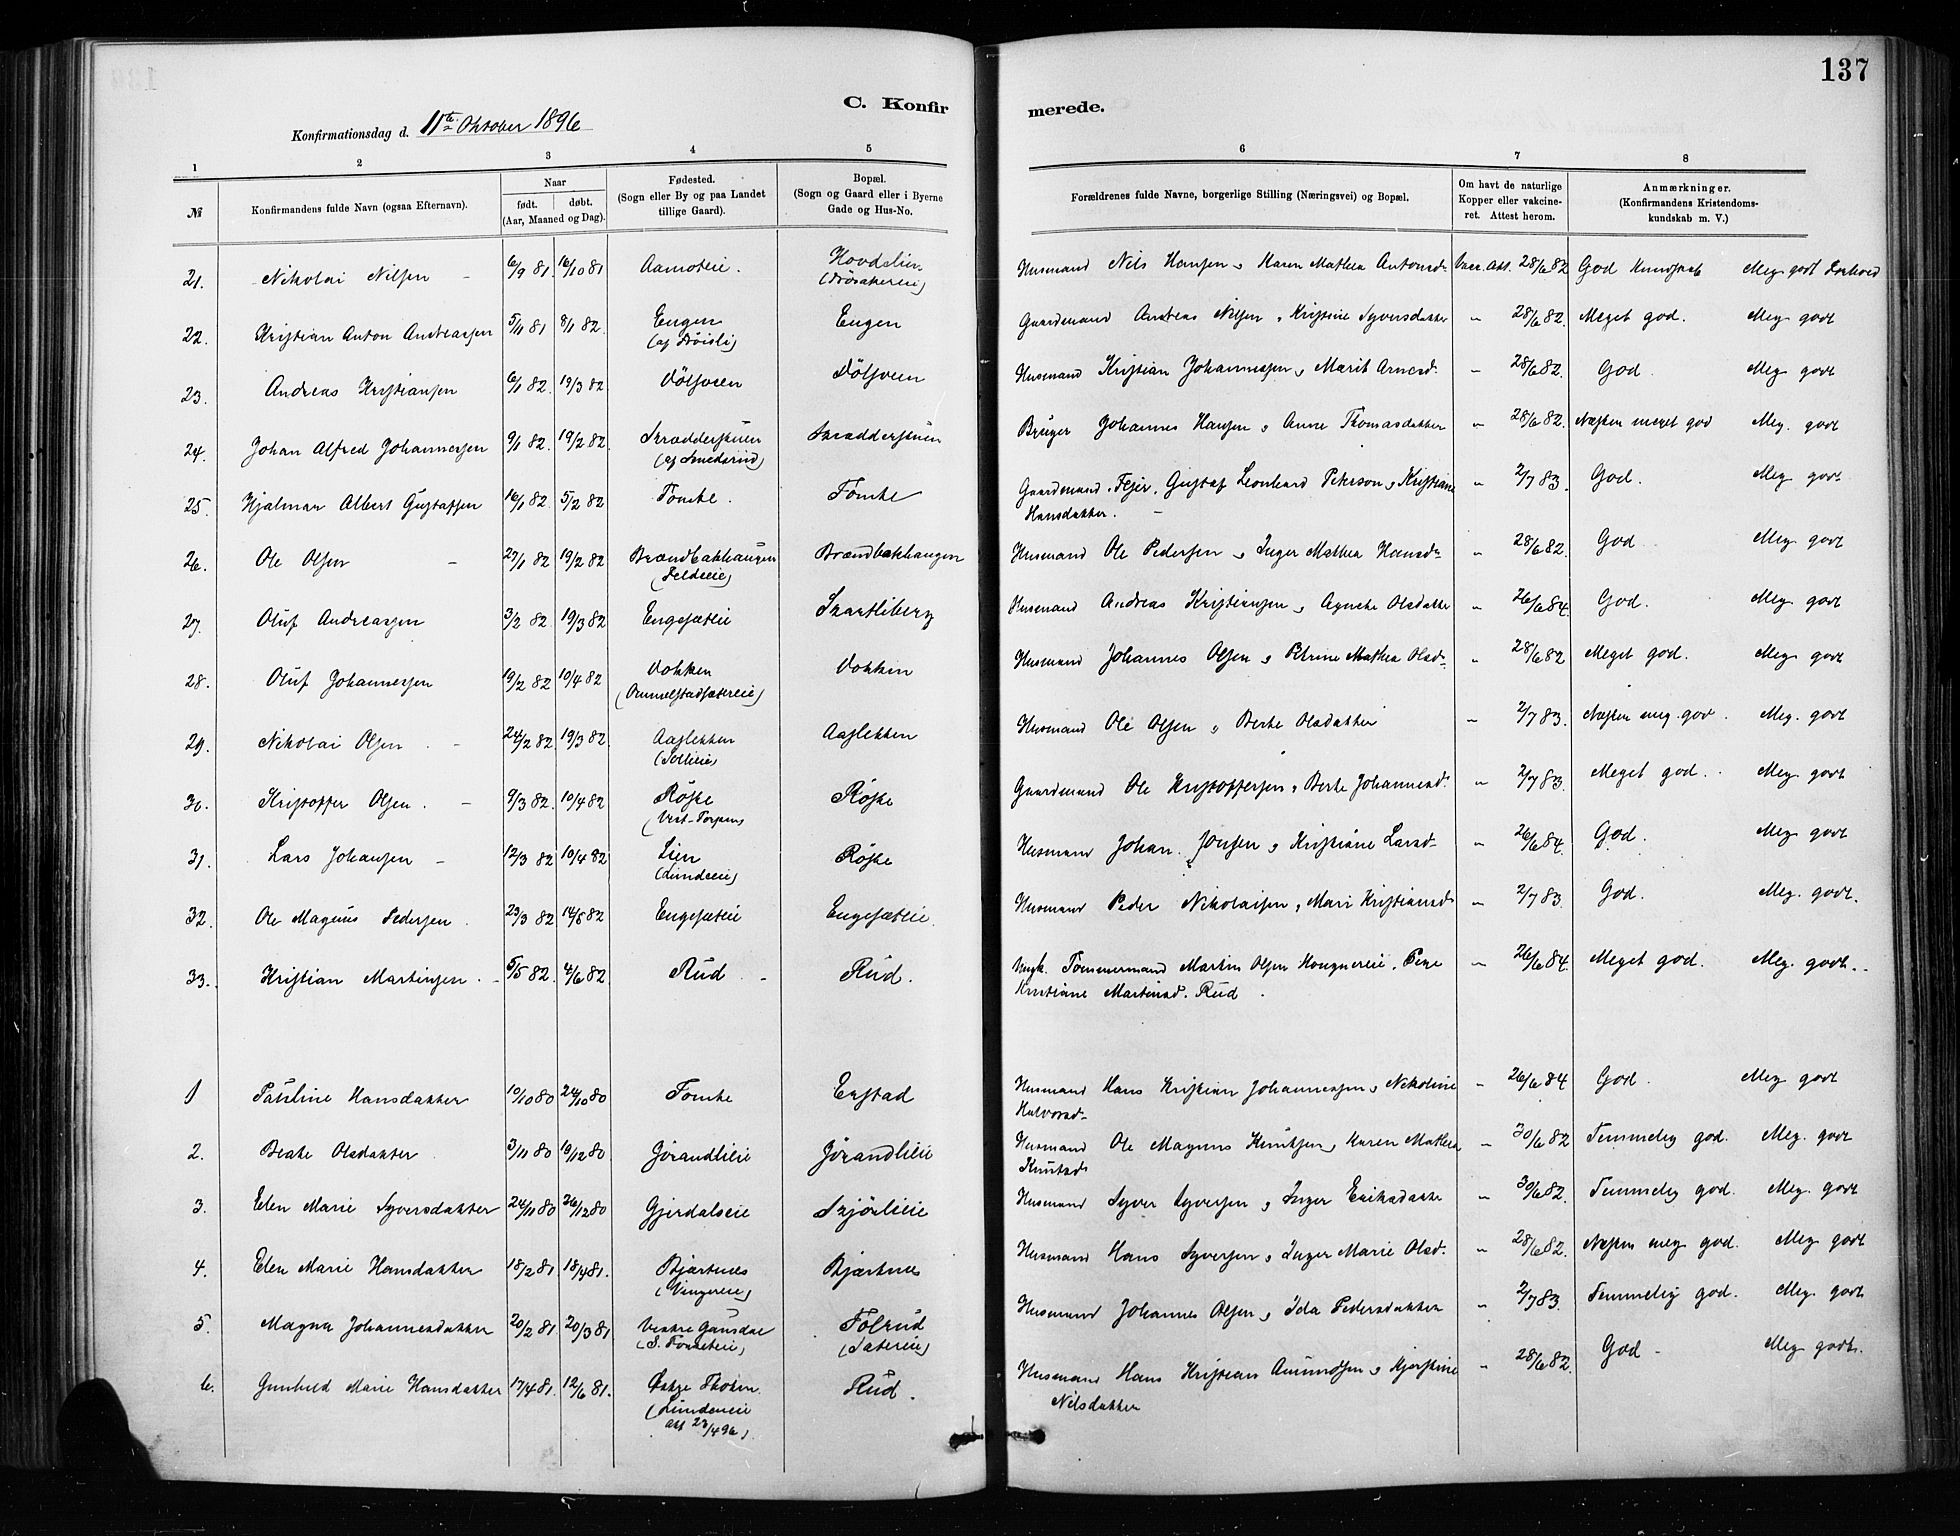 137
C. Konfirmerede.
Konfirmationsdag d. 11te Oktober 1896
1 2 3 4 5 6 7 8
№
Konfirmandens fulde Navn (ogsaa Efternavn).
Naar
født. døbt.
(Aar, Maaned og Dag).
Fødested.
(Sogn eller By og paa Landet
tillige Gaard).
Bopæl.
(Sogn og Gaard eller i Byerne
Gade og Hus-No.
Forældrenes fulde Navne, borgerlige Stilling (Næringsvei) og Bopæl.
Om havt de naturlige
Kopper eller vakcine-
ret. Attest herom.
Anmærkninger.
(Konfirmandens Kristendoms-
kundskab m. V.)
21. Nikolai Nilsen - 6/9 81 16/10 81 Aamoteie. Husmand Nils Hansen, Karen Mathea Antonsd. Vacc. Att. 28/6 82 God Kundskab Meg godt Forhold
22. Kristian Anton Andreassen 5/11 81 8/1 82. Engen Engen Gaardmand Andreas Nilsen, Kristine Syversdatter " 28/6 82. Meget god. Meg godt
23. Andreas Kristiansen 6/1 82. 19/3 82 Dølsveen Dølsveen Husmand Kristian Johannessen, Marit Arnesd. " 28/6 82. God. Meg godt
24. Johan Alfred Johannessen 9/1 82. 19/2 82. Skrædderstuen Skrædderstuen Brüger Johannes Hansen, Anne Thomasdatter " 28/6 82. Næsten meget god Meg. godt
(af Smedsrud)
25. Hjalmar Albert Gustafsen 16/1 82. 5/2 82 Tomte. Tomte Gaardmand, Fejer, Gustaf Leonhard Peterson, Kristiane " 2/7 83. God. Meg godt
Hansdatter.
26. Ole Olsen - 27/1 82 19/2 82 Brændbakhaugen Brændbakhaugen Husmand Ole Pedersen, Inger Mathea Hansd. " 28/6 82. God Meg. godt
27. Oluf Andreassen 3/2 82. 19/3 82 Engesæteie Skartliberg Husmand Andreas Kristiansen, Agnethe Olsdatter " 26/6 84. God. Meg. godt
28. Oluf Johannessen 19/2 82 10/4 82 Dokken Dokken Husmand Johannes Olsen, Petrine Mathea Olsd. " 28/6 82 Meget god. Meg godt
29. Nikolai Olsen - 24/2 82. 19/3 82. Aaslekken Aaslekken Husmand Ole Olsen, Berthe Olsdatter " 2/7 83. Næsten meg. god. Meg. godt
30. Kristoffer Olsen. - 9/3 82. 10/4 82 Røste Røste Gaardmand Ole Kristoffersen, Berthe Johannesd. " 2/7 83. Meget god. Meg. godt
(Vest-Torpen)
31. Lars Johansen - 12/3 82 10/4 82 Lien Røste Husmand Johan Jonsen, Kristiane Larsd. " 26/6 84. God. Meg godt
32. Ole Magnus Pedersen. 23/3 82 14/5 82 Engesæteie Engesæteie. Husmand Peder Nikolaisen, Mari Kristiansd " 2/7 83. God. Meg. godt.
33. Kristian Martinsen. 5/5 82. 4/6 82. Rud - Rud. Ungk. Tømmermand Martin Olsen Haugnereie, Pige " 26/6 84. Meget god. Meg. godt.
Kristiane Martinsd. Rud.
1 Pauline Hansdatter 10/10 80 24/10 80 Tomte Enstad Husmand Hans Kristian Johannessen, Nikoline " 26/6 84 God. Meg godt
Halvorsd.
2. Beate Olsdatter 3/11 80 19/12 80 Gjørandlieie Gjørandlieie Husmand Ole Magnus Knutsen, Karen Mathea " 30/6 82 Temmelig god. Meg. godt
Knutsd.
3. Elen Marie Syversdatter 24/11 80 26/12 80 Gjerdalseie Skjørlieie Husmand Syver Syversen, Inger Eriksdatter " 30/6 82. Temmelig god. Meg. godt
4. Elen Marie Hansdatter 18/2 81. 18/4 81. Bjærtnes Bjærtnes Husmand Hans Syversen, Inger Marie Olsd. " 28/6 82. Næsten meg god. Meg godt
(Vingereie)
5. Magna Johannesdatter 20/2 81. 20/3 81 Vestre Gausdal Folrud Husmand Johannes Olsen, Ida Pedersdatter " 2/7 83. Temmelig god. Meg. godt
6. Gunhild Marie Hansdatter 17/4 81. 12/6 81. Østre Thoten Rud. Husmand Hans Kristian Amundsen, Kjerstine " 28/6 82. God - Meg godt.
(Lundeneie Nilsdatter
att 23/4 96).